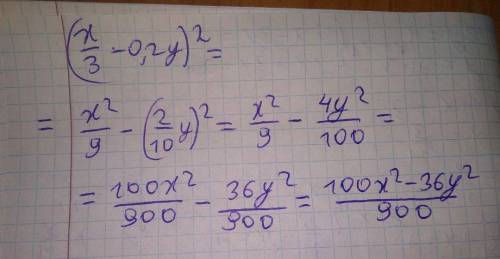 (x/3 - 0,2y)² =
= x²/9 - (2/10 y)² = x²/9 - 4y²/100 =
= 100x²/900 - 36y²/900 = 100x²-36y²/900